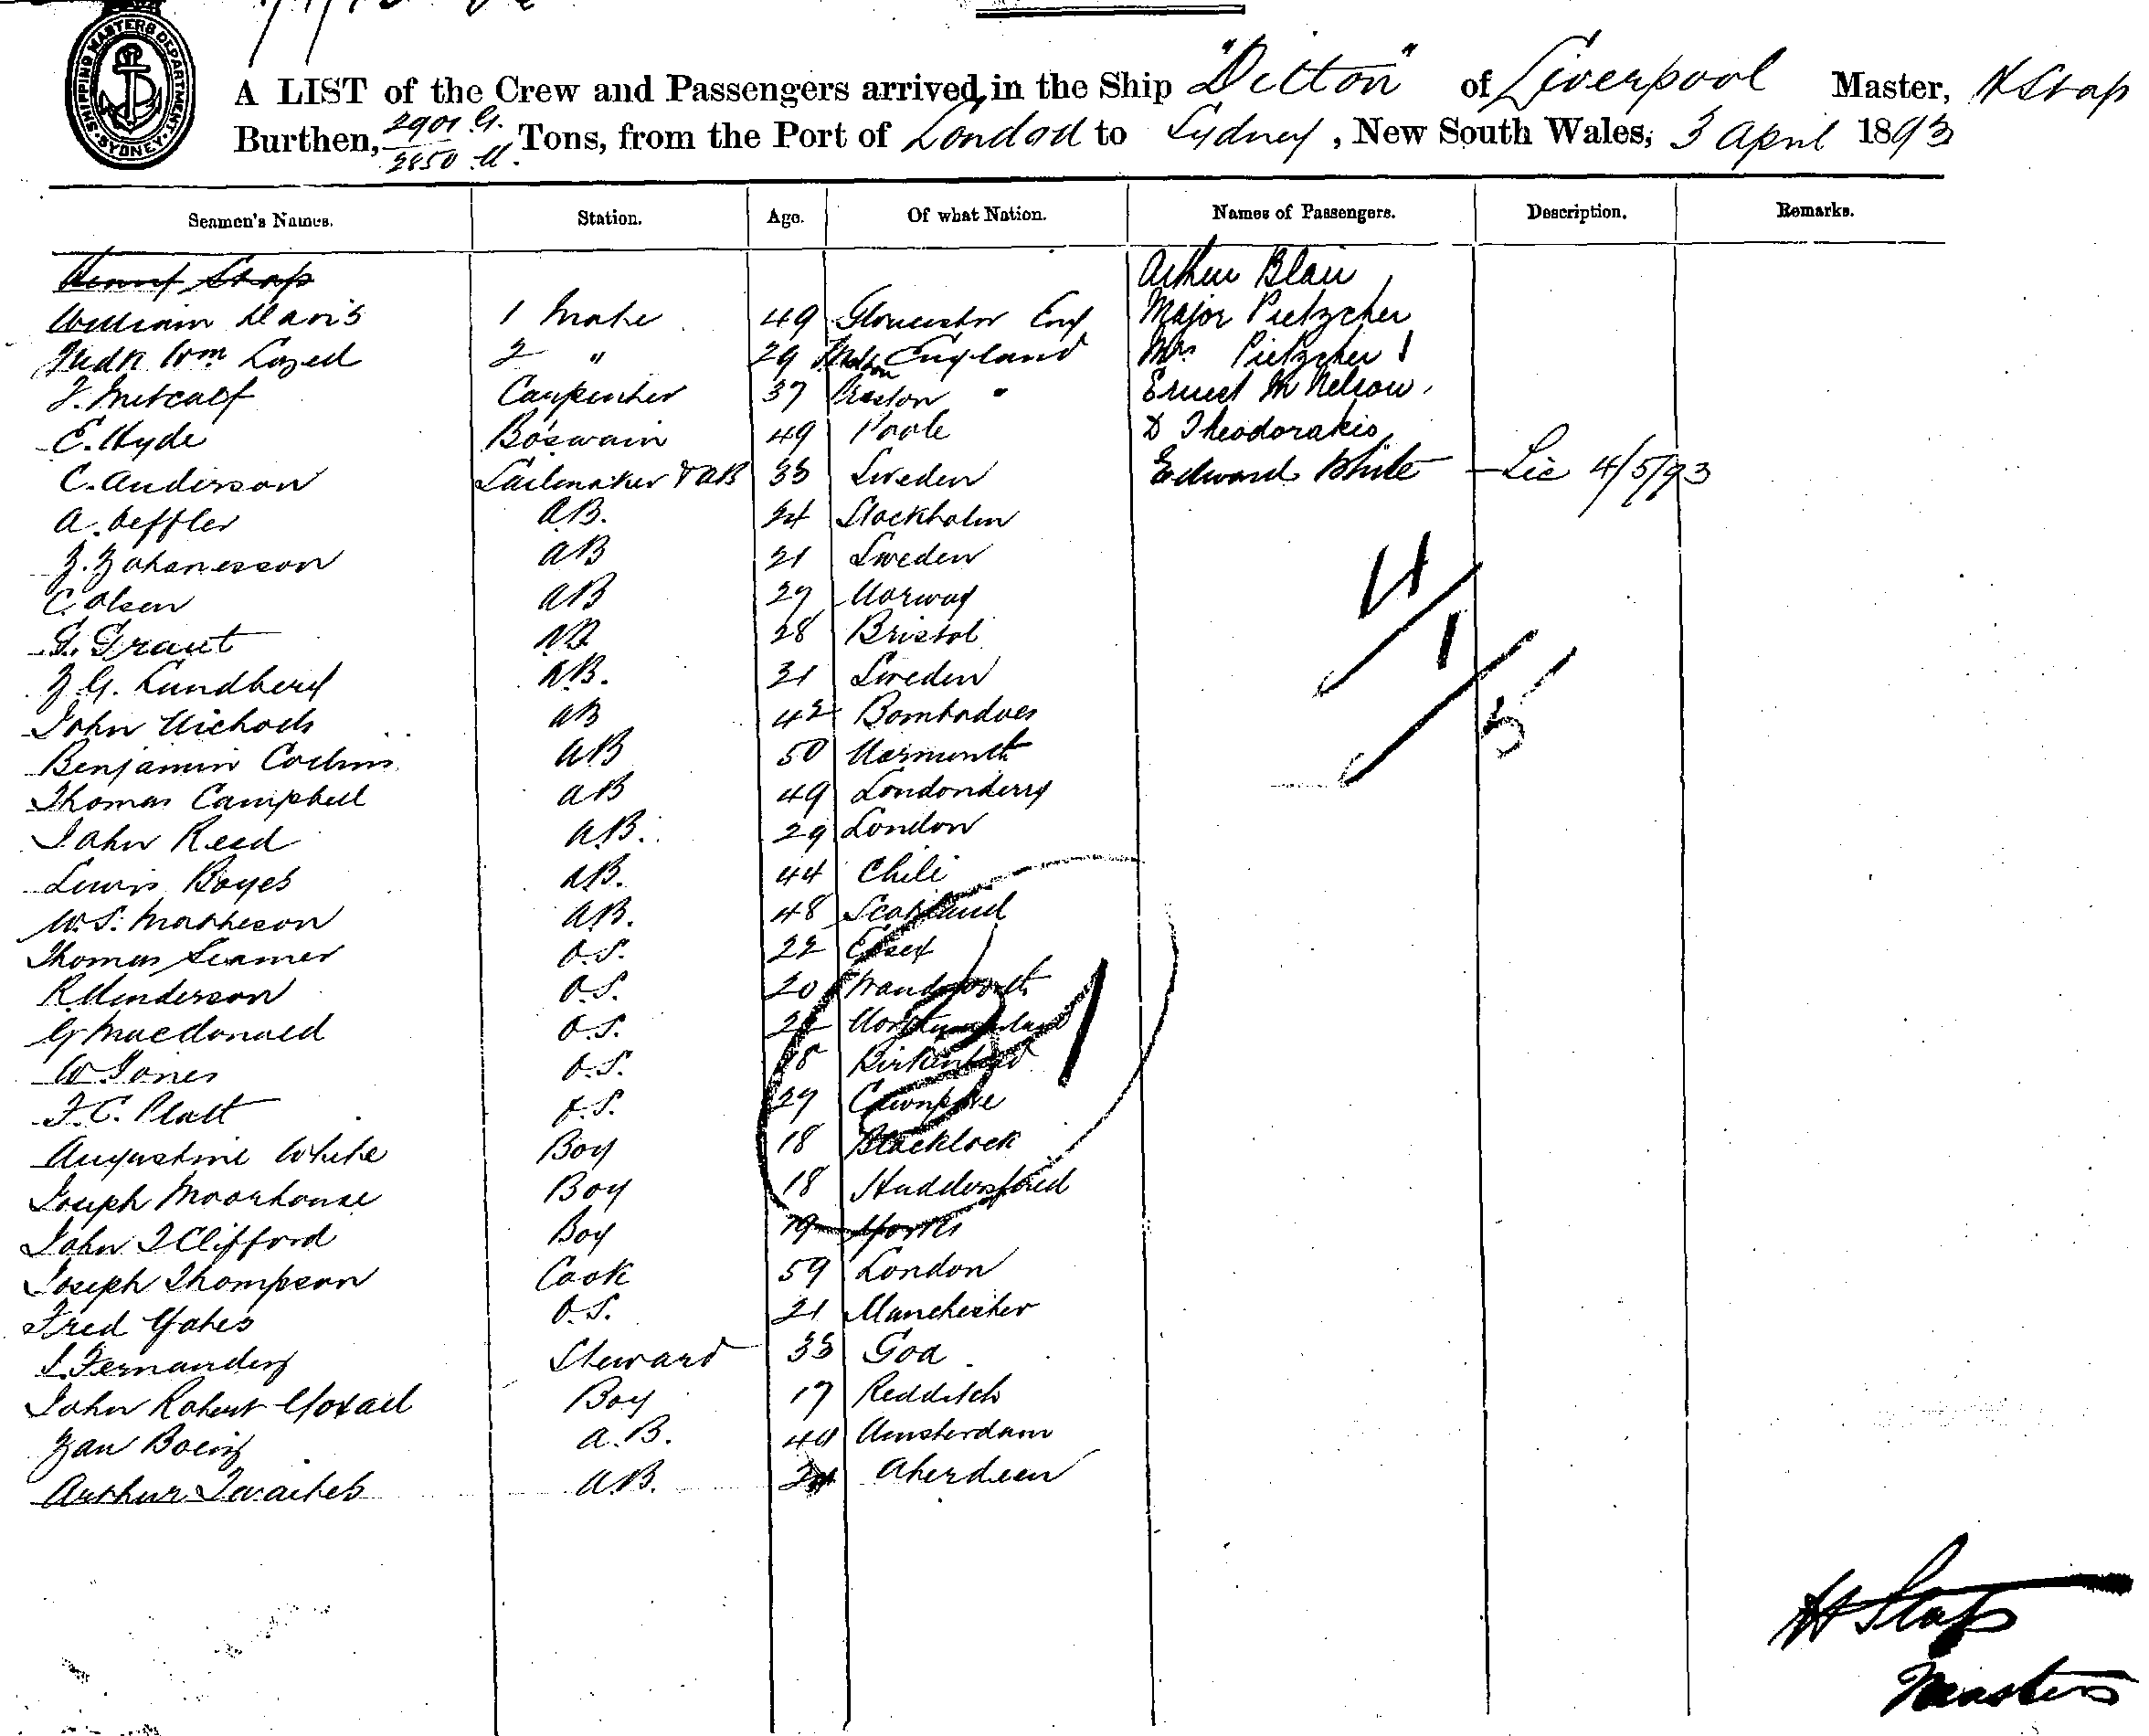 SHIPPING MASTERS DEPARTMENT SYDNEY
A LIST of the Crew and Passengers arrived in the Ship "Ditton" of Liverpool Master, H Stap
Burthen, 2901 G. 2850 N. Tons, from the Port of London to Sydney, New South Wales, 3 April 1893
Seamen's Names. Station. Age. Of what Nation. Names of Passengers. Description. Remarks.
Henry Stap Arthur Blair
William Davis 1 Mate 49 Gloucester Eng Major Pietzcher
Wm 2 " 29 England Mrs Pietzcher 1
J. Metcalf Carpenter 37 Preston " Ernest M Nelson
E. Hyde Boswain 49 Poole D Theodorakis
C. Anderson Sailmaker & AB 33 Sweden Edward White — Lic 4/5/93
A. AB. 24 Stockholm
J. Johanesson AB 21 Sweden
C. Olsen AB 27 Norway
G. Grant AB 28 Bristol
J. G. Lundberg AB. 31 Sweden
John Nichols AB 42
Benjamin AB 50
Thomas Campbell AB 49 Londonderry
John Reed AB. 29 London
Lewis Boyes AB. 44 Chili
W. S. Matheson AB. 48 Scotland
Thomas Seamer O.S. 22 Essex
R Henderson O.S. 20 Wandsworth
G Macdonald O.S. Northumberland
W Jones O.S. 18 Birkenhead
F. C. Platt O.S. 27 Cawnpore
Augustine White Boy 18 Blacklock
Joseph Moorhouse Boy 18 Huddersfield
John J Clifford Boy 19 Yorks
Joseph Thompson Cook 59 London
Fred Yates O.S. 21 Manchester
S. Fernandez Steward 33 Goa
John Robert Boy 17 Redditch
Jan A.B. 40 Amsterdam
Arthur Twaites AB. Aberdeen
4
1
5
31
H Stap
Master